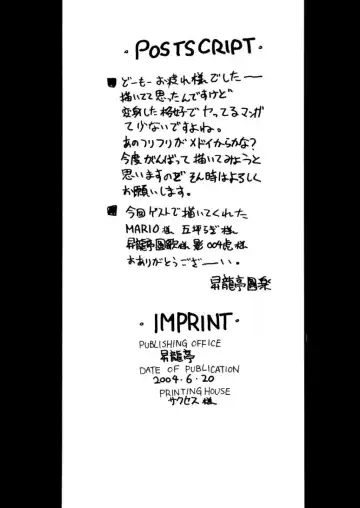 ・POSTSCRIPT・
■どーもーお疲れ様でしたー
描いてて思ったんですけど
変身した格好でヤッてるマンガ
て少ないですよね。
あのフリフリがメドイからかな?
今度がんばって描いてみようと
思いますのでそん時はよろしく
お願いします。
■今回ゲストで描いてくれた
MARIO様 五坪らぎ様
昇龍亭圓歌様 影004虎様
おありがとうございーい。
昇龍亭圓楽
・IMPRINT・
PUBLISHING OFFICE
昇龍亭
DATE OF PUBLICATION
2004・6・20
PRINTING HOUSE
サクセス様